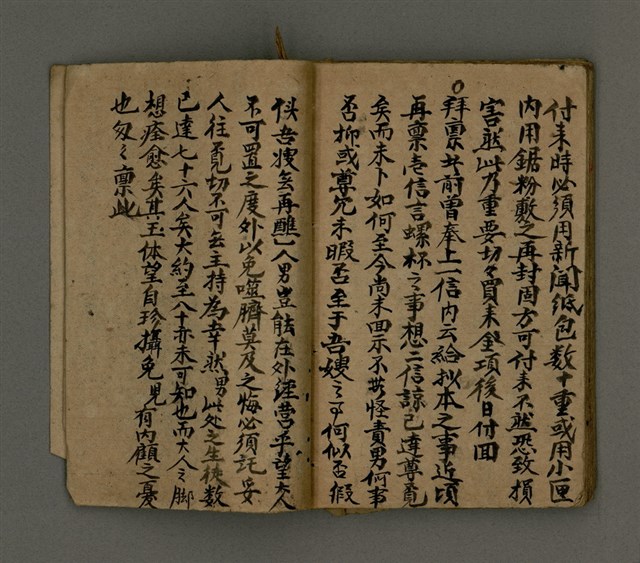 付来時必須用新聞紙包数十重或用小匣
内用鋸粉敷之再封固方可付来不然恐致損
害然此乃重要切々買来金項後日付面
拜禀女前曾奉上一信内云給拟本之事近頃
再禀壱信言螺杯之事想二信諒已達尊覧
矣而未卜如何至今尚未回示不其怪責男何事
否抑或尊冗未暇否至于吾嫂之事何似否假
似吾嫂無再醮人男豈能在外経営乎望大人
不可置之度外以免噬臍莫及之悔必須託妥
人往覓切不可無主持為幸然男此处之生徒数
已達七十六人矣大約至八十亦未可知也而大人之脚
想痊愈矣其玉体望自珍攝免児有内顧之憂
也匆々禀此